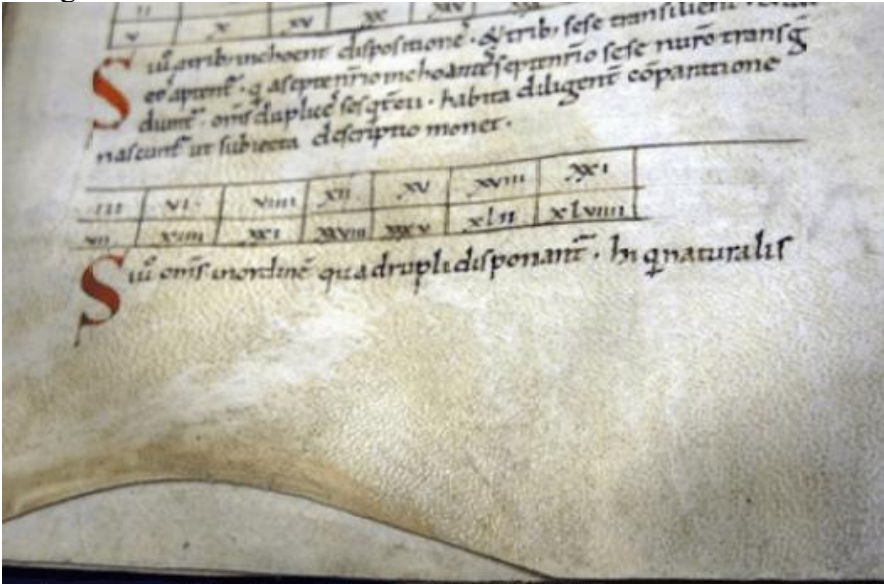 II
V X XV XX XXV
Siū̄ atrib; inchoent dispositionē. & trib; sese transilient
ei aptent̄. q̄ aseptennr̄io inchoantes septenn̄rio sese nūro transḡ
dunt̄. om̄s duplices sesq̄rtii. habita diligenti cōparatione
nascunt̄ ut subiecta descriptio monet.
III VI VIIII XII XV XVIII XXI
VII XIIII XXI XXVIII XXXV XLII XLVIIII
Siū̄ om̄s inordinē quadrupli disponant̄. hi q̄ naturalis